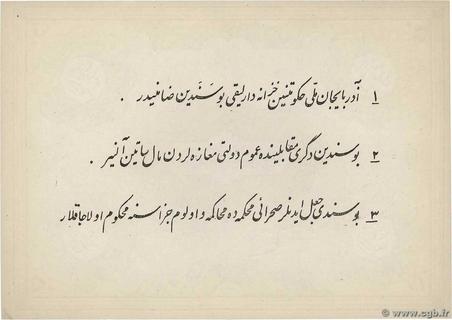 ۱ آذربایجان ملی حکومتنین خزانه دارلیقی بو سَنَدین ضامنیدر .
۲ بو سندین دگری مقابلینده عموم دولتی مغازه لردن مال ساتین آلنیر .
۳ بو سندی جعل ایدنلر صحرائی محکمه ده محاکمه و اولوم جزاسنه محکوم اولاجاقلار
© www.cgb.fr